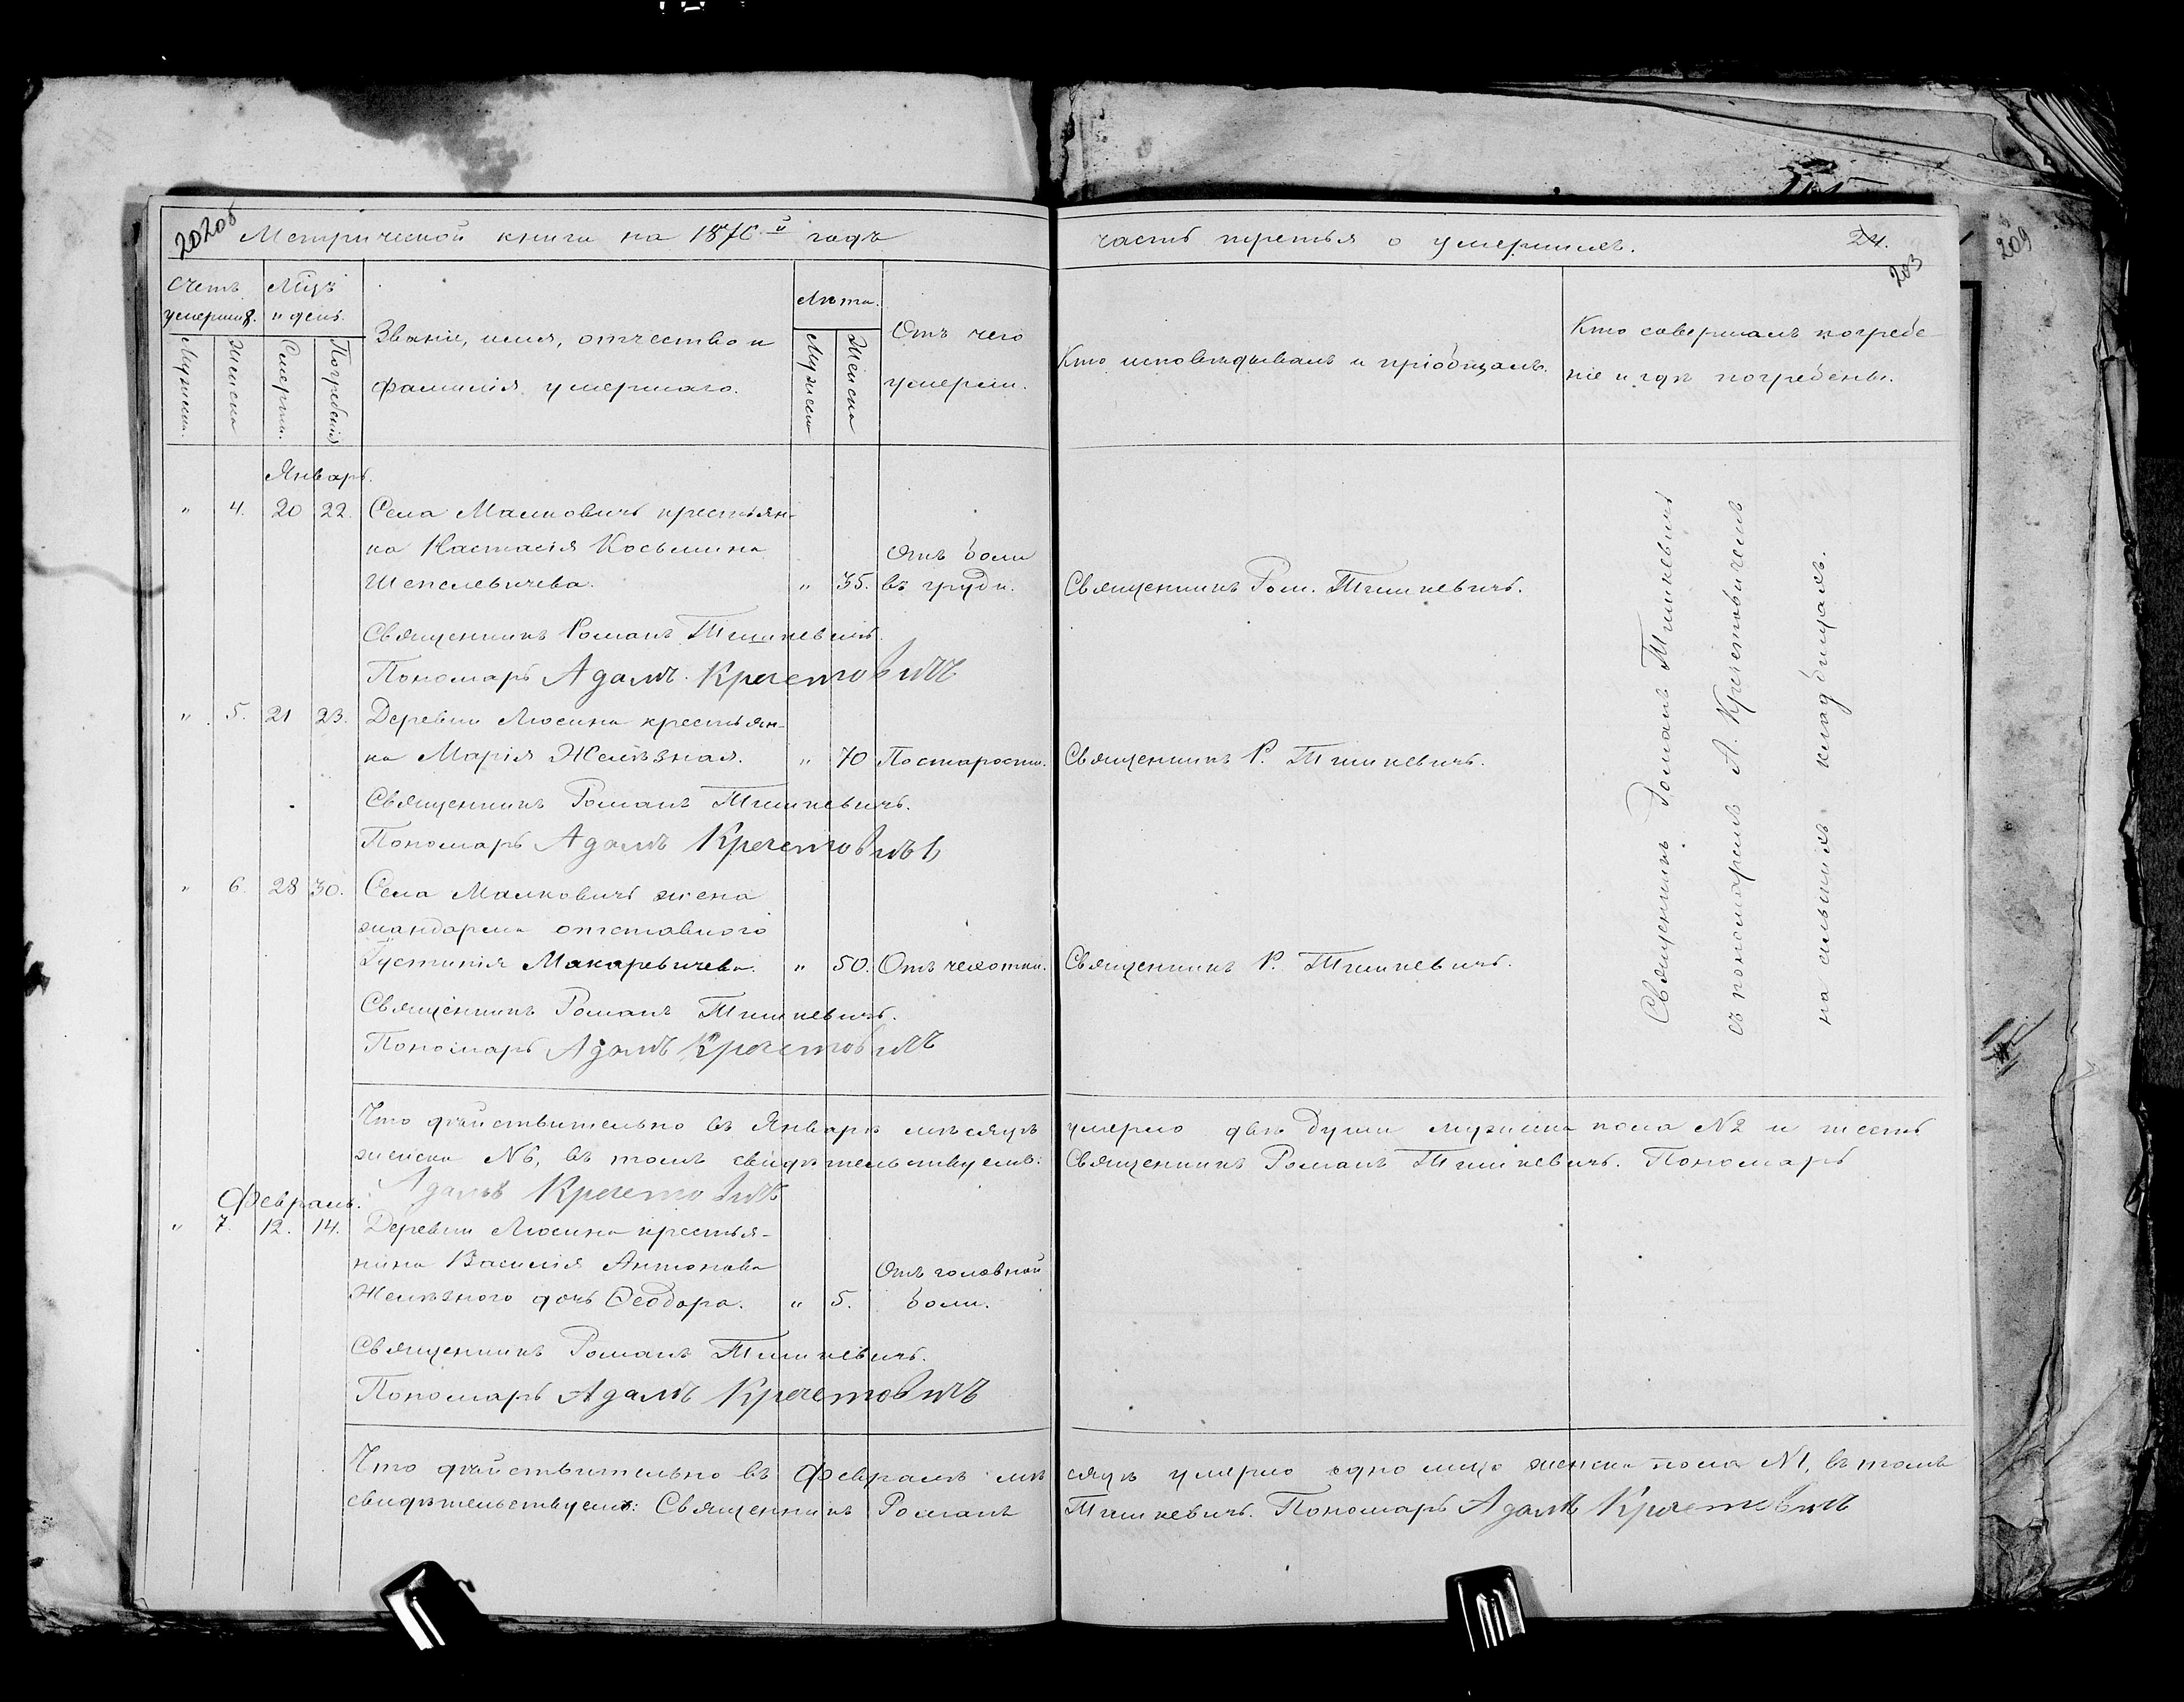 Метрической книги на 1876й годъ
часть третья о умершихъ.
24.
203
209
Счетъ умерших.
Мцъ и день.
Званіе, имя, отчество и фамилія умершаго.
Лѣта.
Отъ чего умерли.
Кто исповѣдывалъ и пріобщалъ.
Кто совершалъ погребеніе и гдѣ погребены.
Мужеска.
Женска
Смерти.
Погребенія
Мужеска
Женска
Январь.
" 4. 20 22. Села Малковичъ крестьян-
ка Настасія Косьмина
Отъ боли
Шепелевичева. " 35. въ груди. Священникъ Ром. Тишкевичъ.
Священникъ Романъ Тишкевичъ.
Пономарь Адамъ Кречетовичъ
" 5. 21 23. Деревни Люсина крестьян-
ка Марія Желѣзная. " 70 По старости. Священникъ Р. Тишкевичъ.
Священникъ Романъ Тишкевичъ.
Пономарь Адамъ Кречетовичъ
" 6. 28 30. Села Малковичъ жена
жандарма отставного
Іустинія Макаревичева. " 50. Отъ чахотки. Священникъ Р. Тишкевичъ.
Священникъ Романъ Тишкевичъ.
Пономарь Адамъ Кречетовичъ
Священникъ Романъ Тишкевичъ
съ пономаремъ А. Кречетовичемъ
на сельскихъ кладбищахъ.
Что дѣйствительно въ Январѣ мѣсяцѣ умерло двѣ души мужеска пола №2 и шесть
женска №6, въ томъ свидѣтельствуемъ: Священникъ Романъ Тишкевичъ. Пономарь
Адамъ Кречетовичъ
Февраль.
" 7. 12. 14. Деревни Люсина крестья-
нина Василія Антонова
Отъ головной
Желѣзного дочь Ѳеодора. " 5. боли.
Священникъ Романъ Тишкевичъ.
Пономарь Адамъ Кречетовичъ
Что дѣйствительно въ Февралѣ мѣсяцѣ умерло одно лицо женска пола №1, въ томъ
свидѣтельствуемъ: Священникъ Романъ Тишкевичъ. Пономарь Адамъ Кречетовичъ